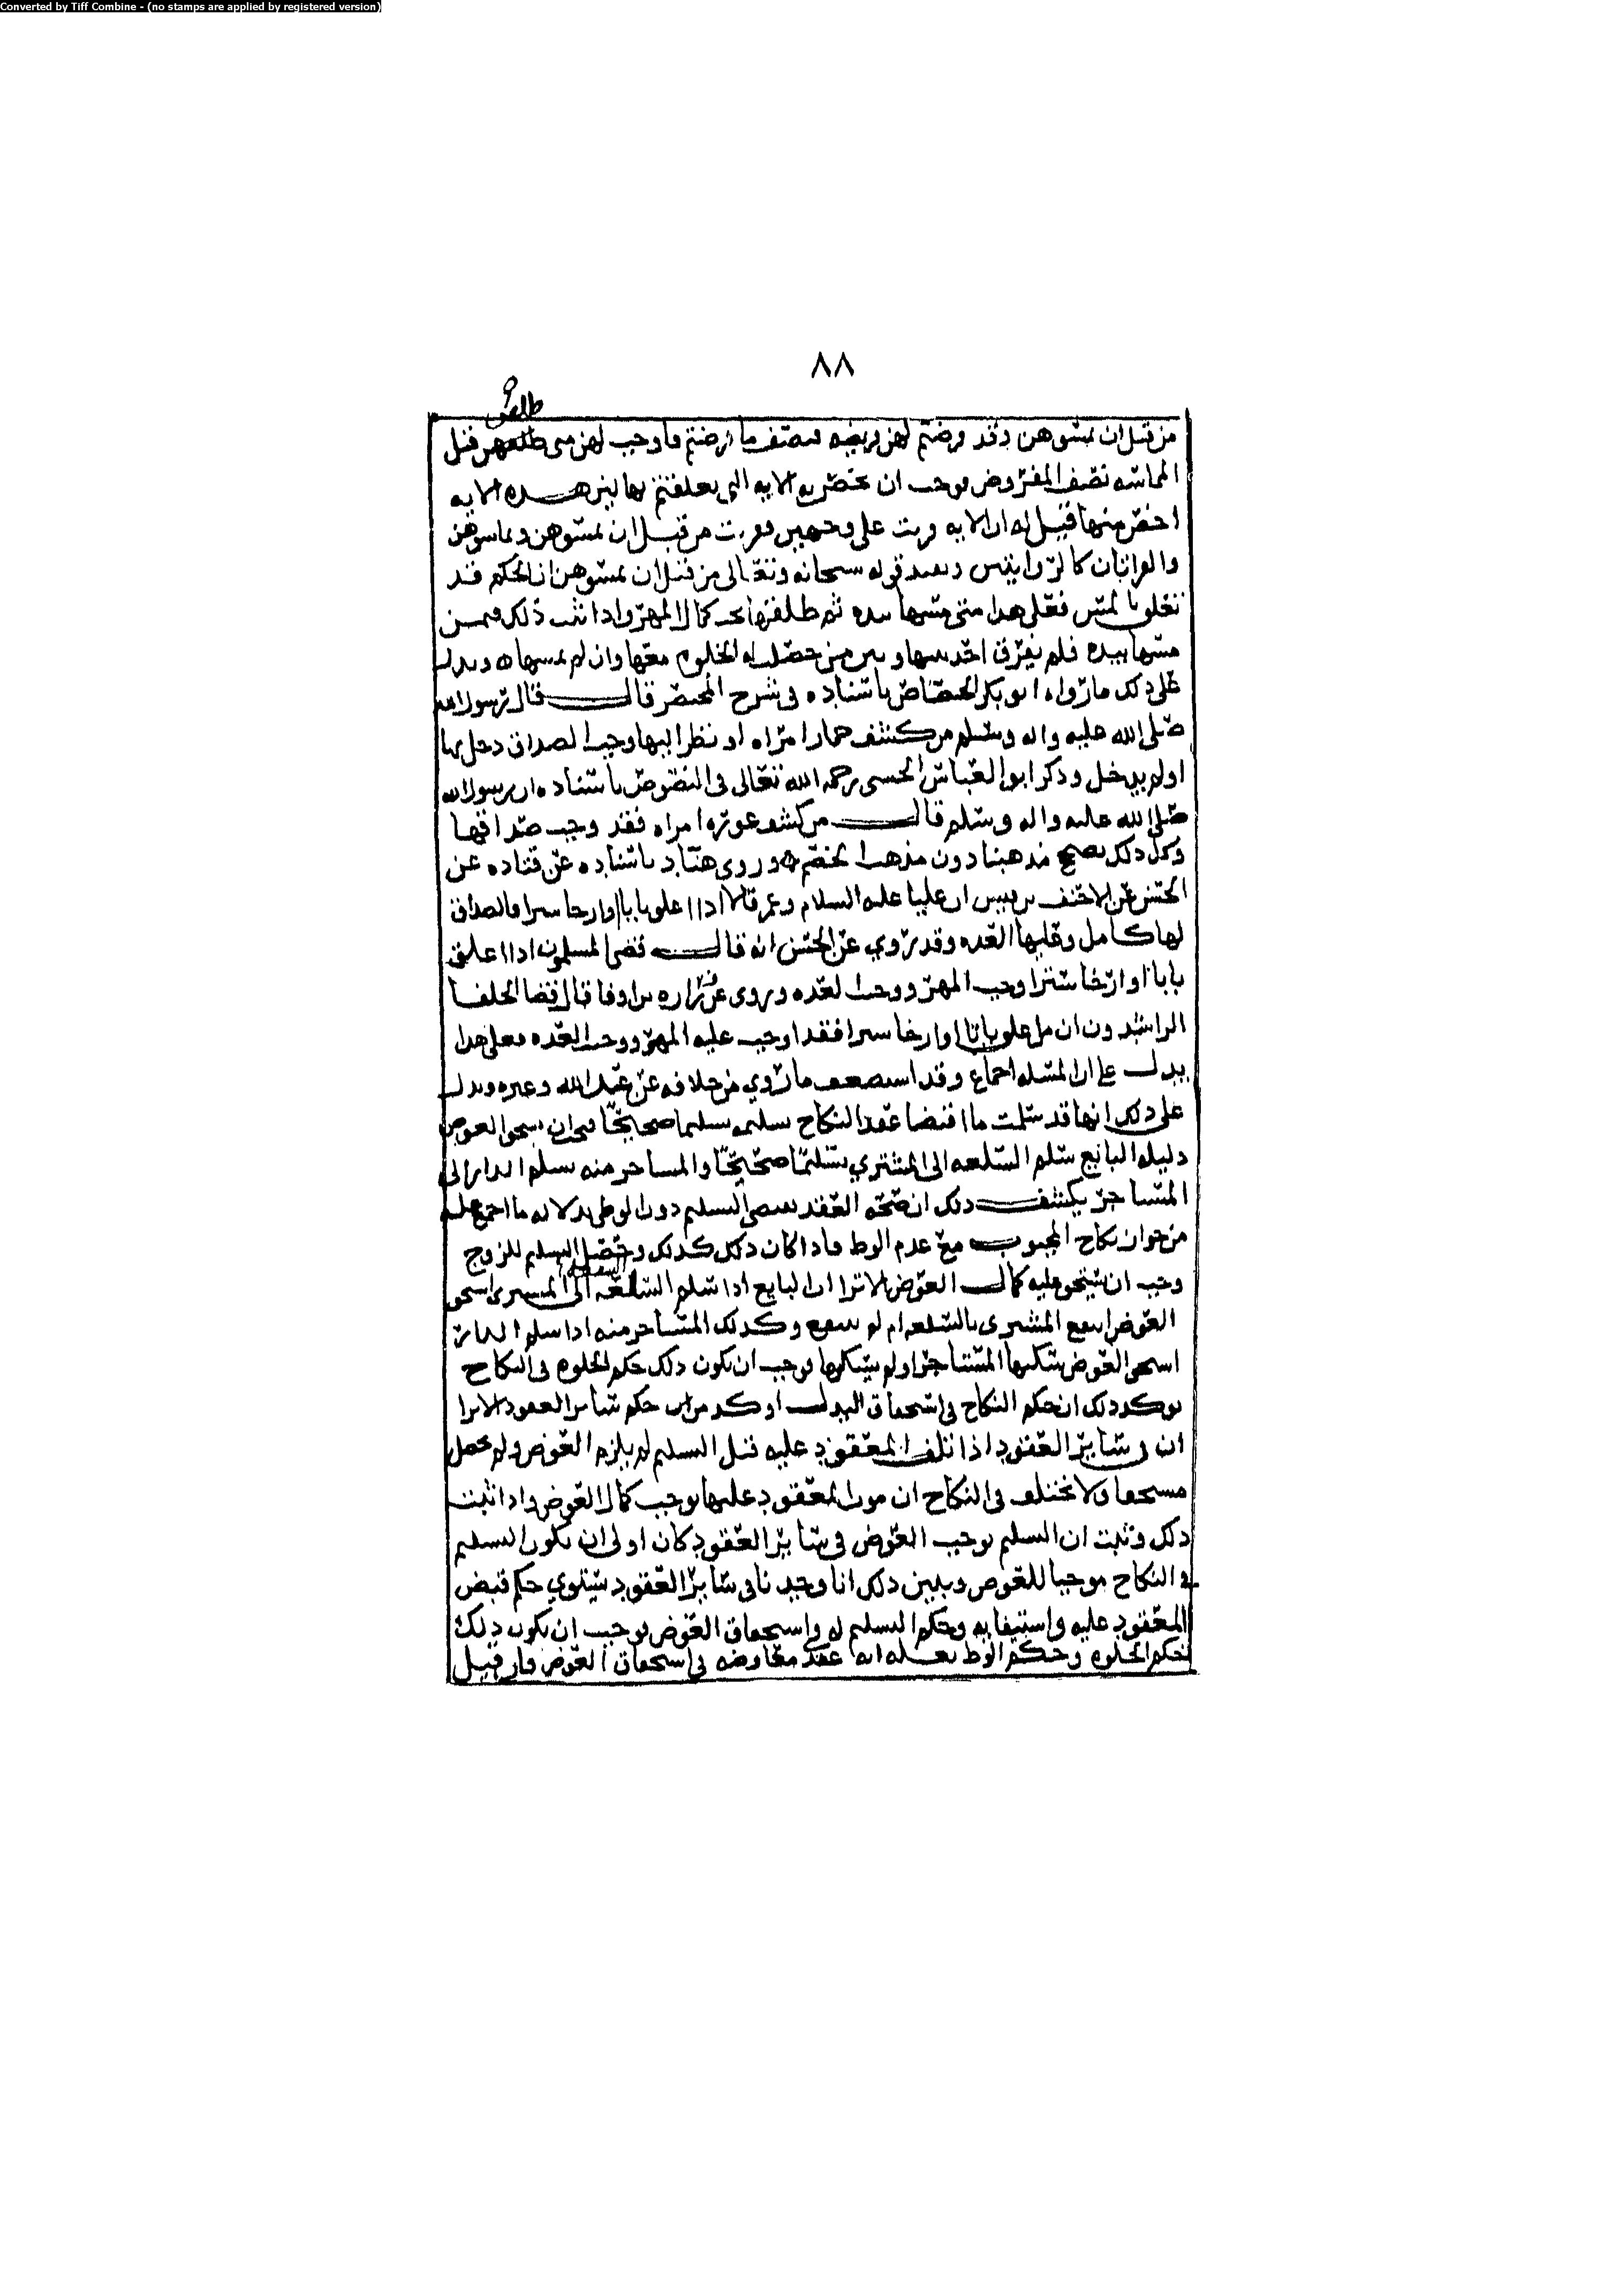 Converted by Tiff Combine - (no stamps are applied by registered version)
٨٨
من قبل ان تمسوهن وقد فرضتم لهن فريضه فنصف ما فرضتم فاوجب لهن متى طلقهن قبل
المماسه نصف المفروض فوجب ان تختص به الايه التي تعلقتم بها لان هذه الايه
اخص منها قيل له ان الايه قريت على وجهين فقريت من قبل ان تمسوهن وتماسوهن
والقراتان كالروايتين ويفيد قوله سبحانه وتعالى من قبل ان تمسوهن ان الحكم قد
تعلق بالمس فعلى هذا متى مسها بيده ثم طلقها يجب كمال المهر واذا ثبت ذلك فيمن
مسها بيده فلم يفرق احد بينها وبين من حصلت له الخلوه معها وان لم يمسها ه ويدل
على ذلك ما رواه ابو بكر الجصاص باسناده في شرح المختصر قال قال رسول الله
صلى الله عليه واله وسلم من كشف خمار امراه او نظر اليها وجب الصداق دخل بها
اولم يدخل وذكر ابو العباس الحسني رحمه الله تعالى في النصوص باسناده ان رسول الله
صلى الله عليه واله وسلم قال من كشف عوره امراه فقد وجب صداقها
وكل ذلك يصحح مذهبنا دون مذهب الخصم ه وروى هناد باسناده عن قتاده عن
الحسن عن الاحنف بن قيس ان عليا عليه السلام وعمر قالا اذا اغلق بابا او ارخا سترا فالصداق
لها كامل وعليها العده وقد روي عن الحسن انه قال قضى المسلمون اذا اغلق
بابا او ارخا سترا وجب المهر ووجبت العده وروى عن زراره بن اوفا قال قضا الخلفا
الراشدون ان من اغلق بابا او ارخا سترا فقد اوجب عليه المهر ووجبت العده فعلى هذا
يدل على ان المسله اجماع وقد استضعف ما روي من خلافه عن عبد الله وغيره ويدل
على ذلك انها قد سلمت ما اقتضا عقد النكاح تسليمه تسليما صحيحا فيجب ان يستحق العوض
دليله البائع سلم السلعه الى المشتري تسليما صحيحا والمستاجر منه يسلم الدار الى
المستاجر يكشف ذلك ان صحه العقد يقتضي التسليم دون الوطي بدلاله ما اجمع عليه
من جواز نكاح المجبوب مع عدم الوط فاذا كان ذلك كذلك وحصل التسليم للزوج
وجب ان يستحق عليه كمال العوض الا ترا ان البايع اذا سلم السلعه الى المشتري استحق
العوض انتفع المشترى بالسلعه ام لم ينتفع وكذلك المستاجر منه اذا سلم الدار
استحق العوض سكنها المستاجر او لم يسكنها فوجب ان يكون ذلك حكم الخلوه في النكاح
يوكد ذلك ان حكم النكاح في استحقاق البدل اوكد من حكم سائر العقود الا ترا
ان في سائر العقود اذا تلف المعقود عليه قبل التسليم لم يلزم العوض ولم يحصل
مستحقا ولا يختلف في النكاح ان موت المعقود عليها يوجب كمال العوض واذا ثبت
ذلك وثبت ان التسليم يوجب العوض في سائر العقود كان اولى ان يكون التسليم
في النكاح موجبا للعوض ويبين ذلك انا وجدنا في سائر العقود يستوي حكم قبض
المعقود عليه واستيفايه وحكم التسليم له في استحقاق العوض فوجب ان يكون ذلك
حكم الخلوه وحكم الوط بعله انه عقد معاوضه في استحقاق العوض فان قيل